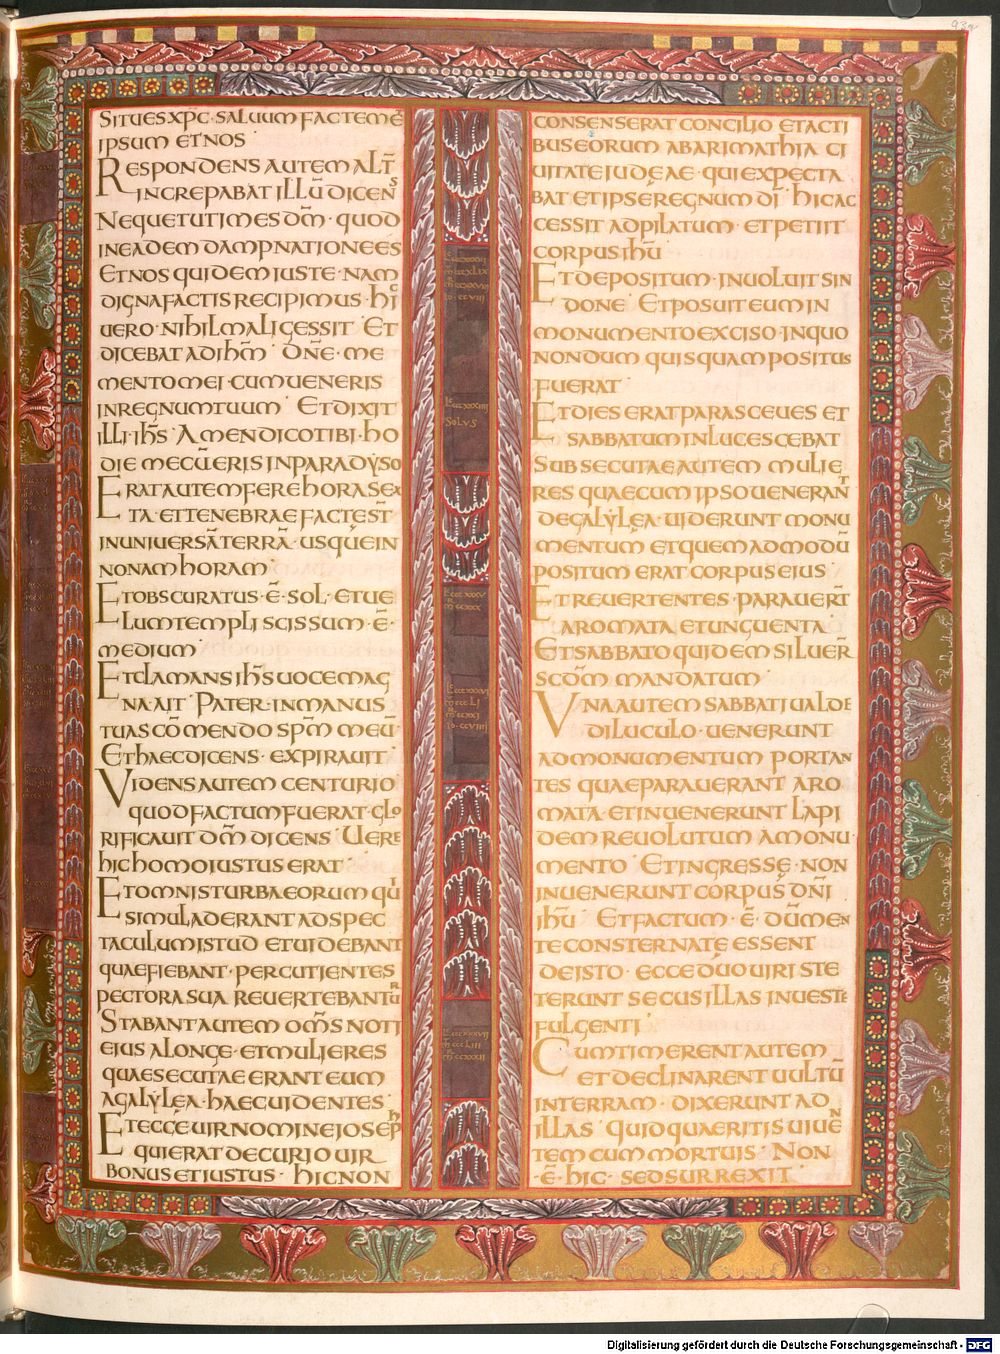 SITUESXPC·SALUUM FACTEMĒ
IPSUM ETNOS
RESPONDENS AUTEM ALT̄
INCREPABAT ILLŪ DICENS
NEQUE TU TIMES DM̄·QUOD
INEADEM DAMPNATIONE ES
ETNOS QUIDEM IUSTE·NAM
DIGNA FACTIS RECIPIMUS·HIC
UERO·NIHIL MALI GESSIT ET
DICEBAT AD IHM̄ DN̄E·ME
MENTO MEI·CUM UENERIS
IN REGNUM TUUM ET DIXIT
ILLI·IHS̄ AMEN DICO TIBI·HO
DIE MECŪ ERIS IN PARADYSO
ERAT AUTEM FERE HORA SEX
TA·ET TENEBRAE FACTE ST̄
IN UNIUERSĀ TERRĀ·USQUE IN
NONAM HORAM
ET OBSCURATUS·Ē·SOL·ET UE
LUM TEMPLI SCISSUM·Ē·
MEDIUM
ET CLAMANS IHS̄ UOCE MAG
NA AIT PATER·IN MANUS
TUAS CŌMENDO SPM̄ MEŪ
ET HAEC DICENS·EXPIRAUIT
VIDENS AUTEM CENTURIO
QUOD FACTUM FUERAT·GLO
RIFICAUIT DM̄ DICENS UERE
HIC HOMO IUSTUS ERAT
ET OMNIS TURBA EORUM QUI
SIMUL ADERANT AD SPEC
TACULUM ISTUD ET UIDEBANT
QUAE FIEBANT·PERCUTIENTES
PECTORA SUA REUERTEBANTUR
STABANT AUTEM OM̄S NOTI
EIUS A LONGE·ET MULIERES
QUAE SECUTAE ERANT EUM
A GALYLEA·HAEC UIDENTES
ET ECCE UIR NOMINE IOSEPH
QUI ERAT DECURIO UIR
BONUS ET IUSTUS·HIC NON
CONSENSERAT CONCILIO ET ACTI
BUS EORUM AB ARIMATHIA CI
UITATE IUDEAE·QUI EXPECTA
BAT ET IPSE REGNUM DĪ HIC AC
CESSIT AD PILATUM·ET PETIIT
CORPUS IHŪ
ET DEPOSITUM·INUOLUIT SIN
DONE ET POSUIT EUM IN
MONUMENTO EXCISO·IN QUO
NONDUM QUISQUAM POSITUS
FUERAT
ET DIES ERAT PARASCEUES ET
SABBATUM INLUCESCEBAT
SUBSECUTAE AUTEM MULIE
RES QUAE CUM IPSO UENERANT
DE GALYLEA·UIDERUNT MONU
MENTUM ET QUEMADMODŪ
POSITUM ERAT CORPUS EIUS
ET REUERTENTES·PARAUERT̄
AROMATA ET UNGUENTA
ET SABBATO QUIDEM SILUER̄
SCD̄M MANDATUM
VNA AUTEM SABBATI UALDE
DILUCULO·UENERUNT
AD MONUMENTUM PORTAN
TES QUAE PARAUERANT ARO
MATA·ET INUENERUNT LAPI
DEM REUOLUTUM A MONU
MENTO ET INGRESSE·NON
INUENERUNT CORPUS DN̄I
IHŪ ET FACTUM·Ē·DŪ MEN
TE CONSTERNATE ESSENT
DE ISTO·ECCE DUO UIRI STE
TERUNT SECUS ILLAS IN UESTE
FULGENTI
CUM TIMERENT AUTEM
ET DECLINARENT UULTŪ
IN TERRAM·DIXERUNT AD
ILLAS QUID QUAERITIS UIUEN
TEM CUM MORTUIS NON
·Ē·HIC·SED SURREXIT
SOLUS
Digitalisierung gefördert durch die Deutsche Forschungsgemeinschaft - DFG